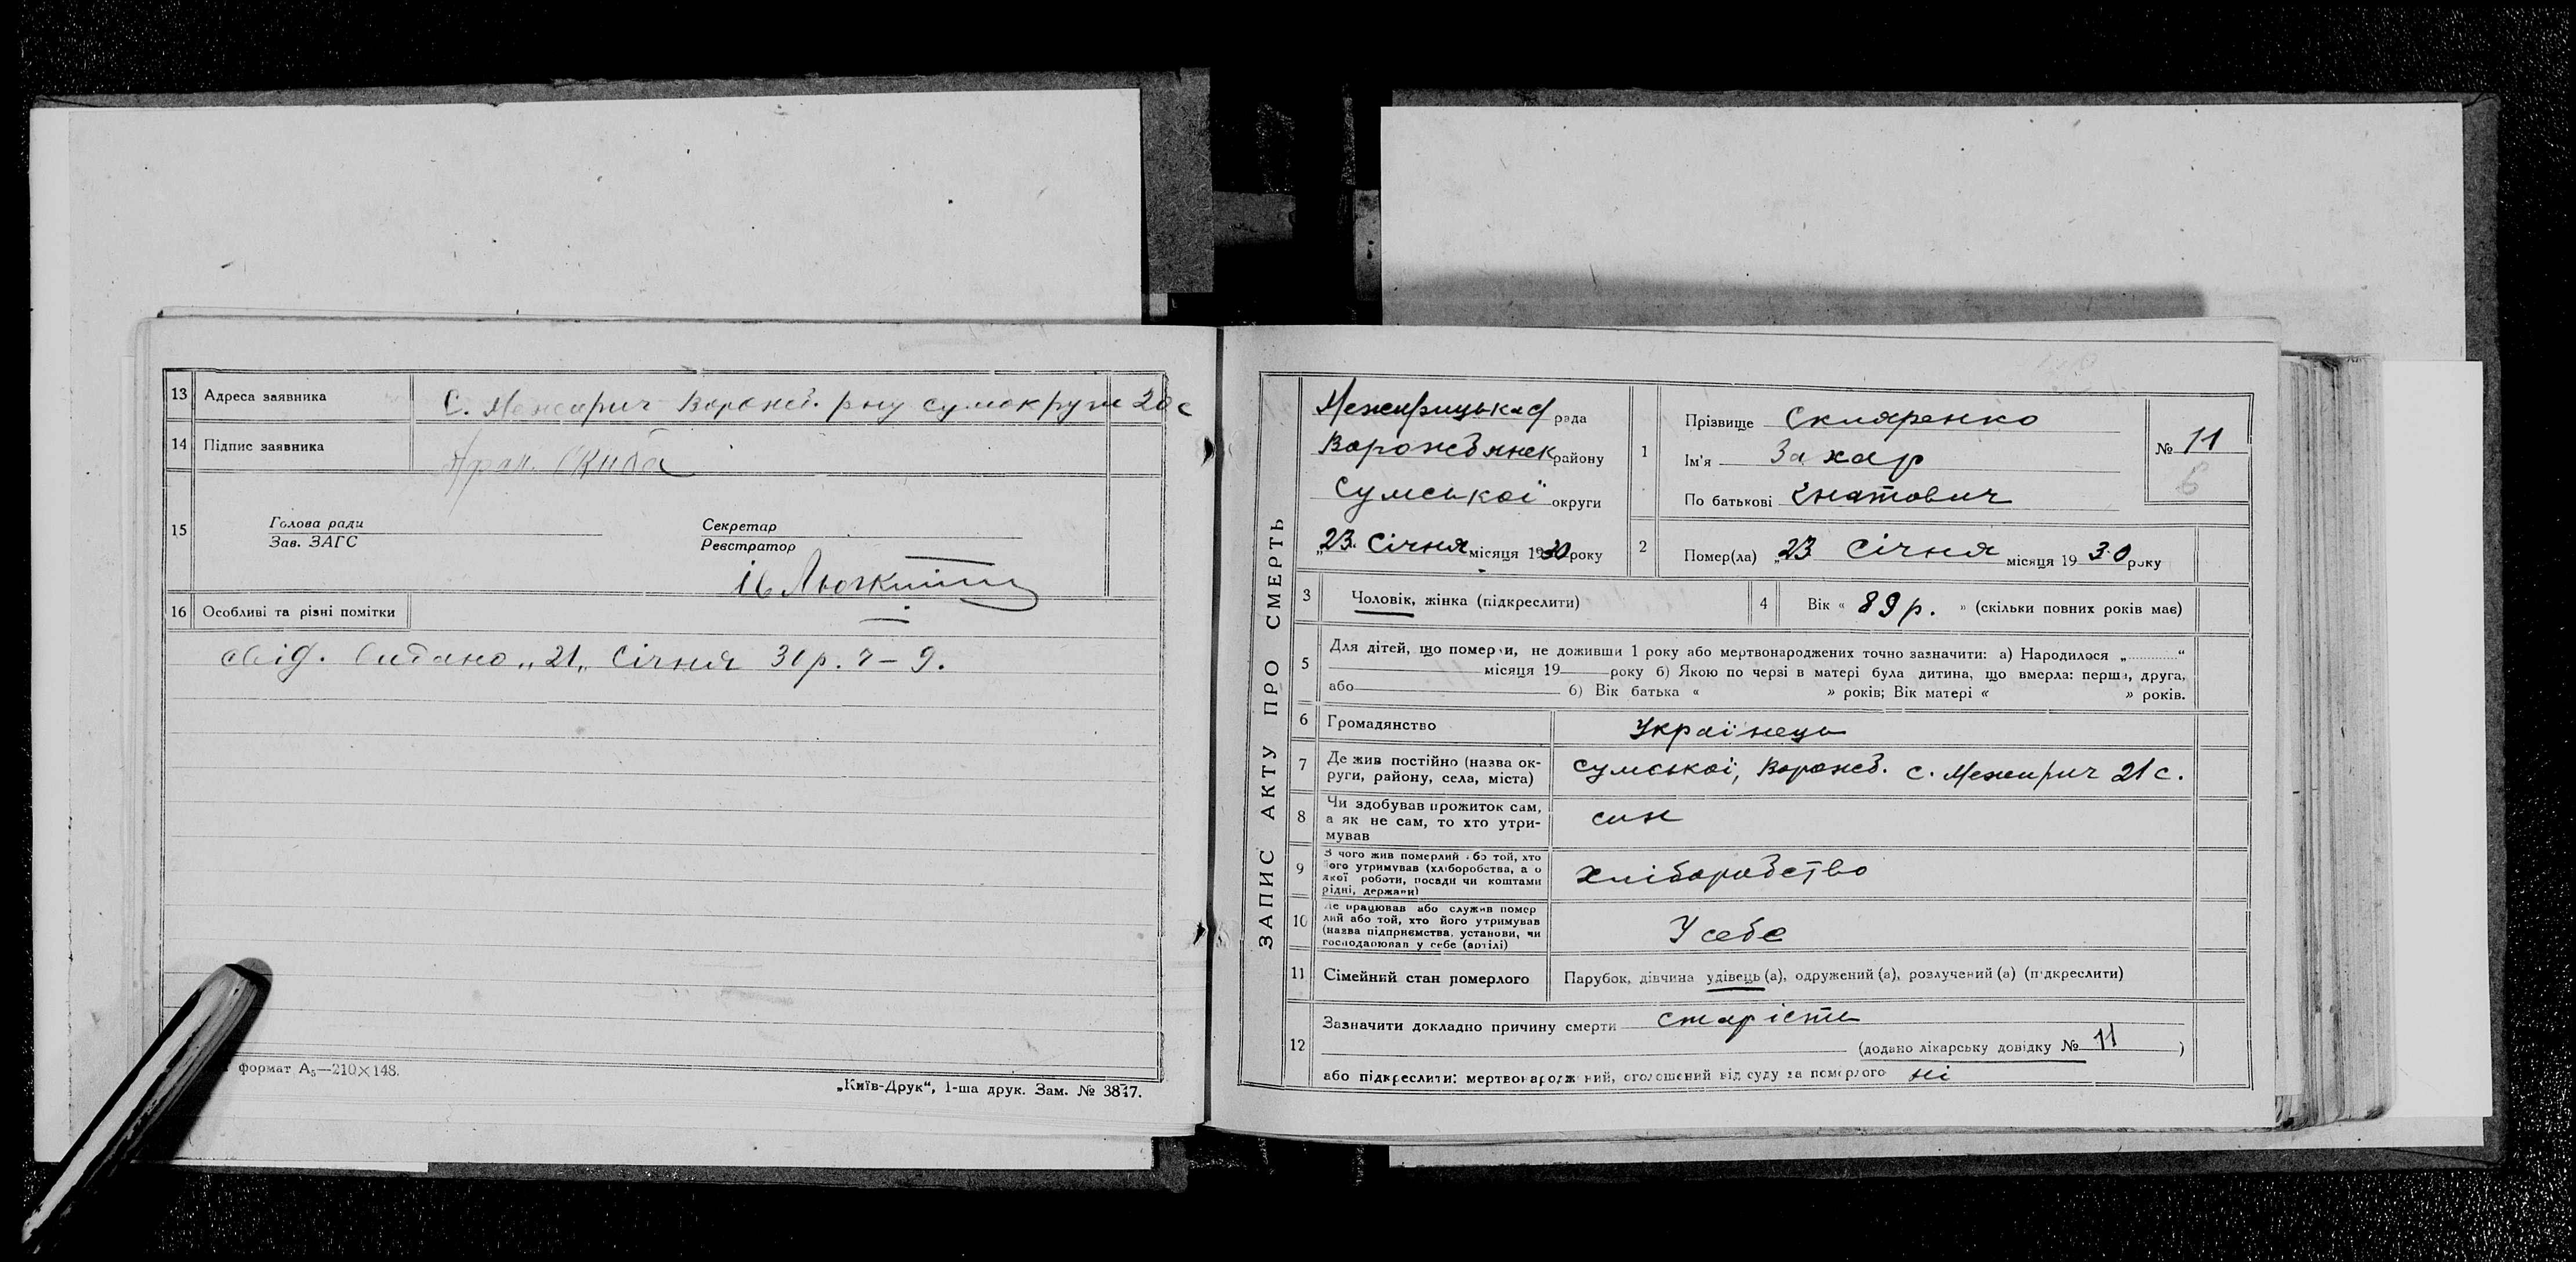 13 Адреса заявника С. МежиричВорожб. р-ну сумокруги 20 с
14 Підпис заявника Скиба
15 Голова ради Секретар
Зав. ЗАГС Реєстратор
16 Особливі та різні помітки
свід. видано „21„ Січня 30 р. ч – 9.
формат А₅—210×148.
„Київ-Друк“, 1-ша друк. Зам. № 3847.
ЗАПИС АКТУ ПРО СМЕРТЬ
Межирицька рада
Ворожбянськ району
Сумської округи
„23„ Січня місяця 1930 року
1 Прізвище Скляренко
Ім'я Захар
По батькові Гнатович
№ 11
6
2 Помер(ла) „23 Січня місяця 19 30 року
3 Чоловік, жінка (підкреслити)
4 Вік « 89 р. » (скільки повних років має)
5 Для дітей, що померли, не доживши 1 року або мертвонароджених точно зазначити: а) Народилося „ “
місяця 19 року б) Якою по черзі в матері була дитина, що вмерла: перша, друга,
або б) Вік батька « » років; Вік матері « » років.
6 Громадянство Українець
7 Де жив постійно (назва ок-
руги, району, села, міста) Сумської, Ворожб. с. Межирич 21 с.
8 Чи здобував прожиток сам,
а як не сам, то хто утри-
мував син
9 З чого жив померлий або той, хто
його утримував (хліборобства, а о
якої роботи, посади чи коштами
рідні, держави) хліборобство
10 Де працював або служив помер
лий або той, хто його утримував
(назва підприємства, установи, чи
господарював у себе (артілі) У себе
11 Сімейний стан померлого Парубок, дівчина удівець (а), одружений (а), розлучений (а) (підкреслити)
12 Зазначити докладно причину смерти старість
(додано лікарську довідку № 11 )
або підкреслити: мертвонароджений, оголошений від суду за померлого ні